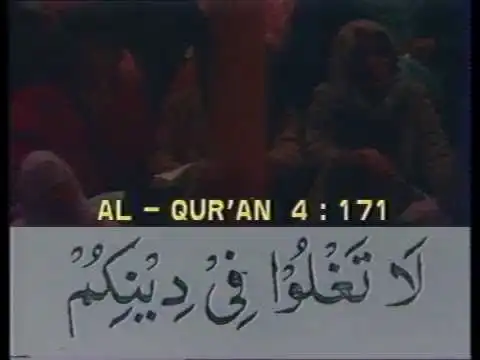 AL - QUR'AN 4 : 171
لَا تَغْلُوْا فِيْ دِيْنِكُمْ